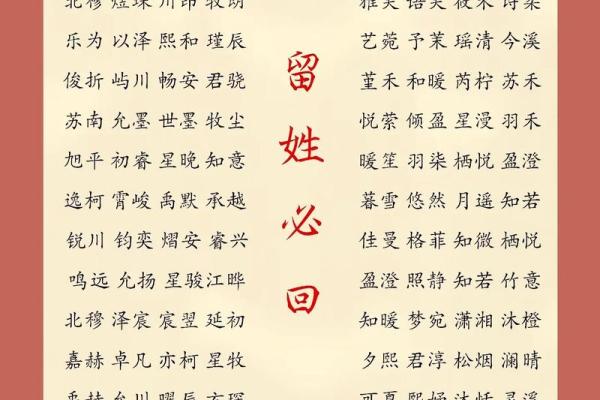 乐为 以泽 熙和 瑾辰
俊折 屿川 畅安 君骁
苏南 允墨 世墨 牧尘
旭平 初睿 星晚 知意
逸柯 霄峻 禹默 承越
锐川 钧奕 熠安 睿兴
鸣远 允扬 星骏 江晔
北穆 泽宸 宸翌 延初
嘉赫 卓凡 亦柯 星牧
留姓必回
艺菀 予茉 瑶清 今溪
堇禾 和暖 芮柠 苏禾
悦萦 倾盈 星漫 羽禾
暖笙 羽柒 栖悦 盈澄
暮雪 悠然 月遥 知若
佳曼 格菲 知微 栖悦
盈澄 照静 知若 竹意
知暖 梦宛 潇湘 沐橙
夕熙 君淳 松烟 澜晴